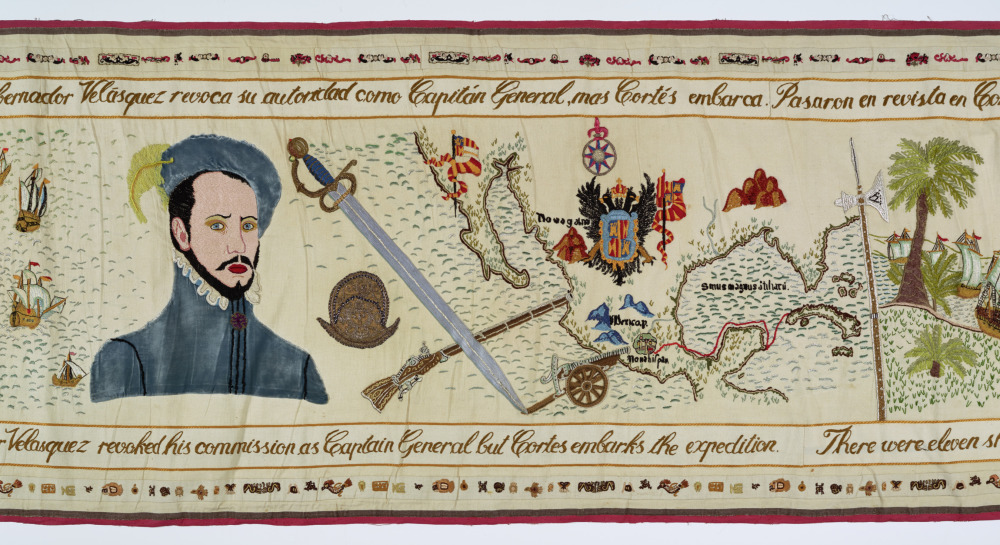 bernador Velásquez revoca su autoridad como Capitán General, mas Cortés embarca. Pasaron en revista en Co
Mexicap.
r Velasquez revoked his commission as Captain General but Cortes embarks the expedition. There were eleven sh